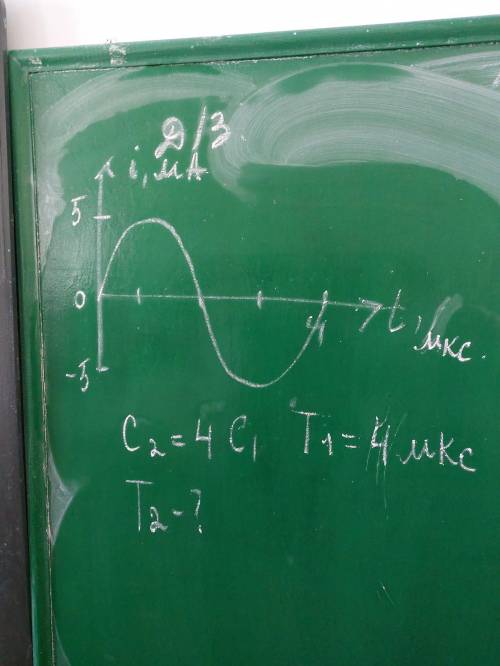 Д/З
i, мА
5
0
-5
4
t, мкс
C₂ = 4 C₁ T₁ = 4 мкс
T₂ - ?